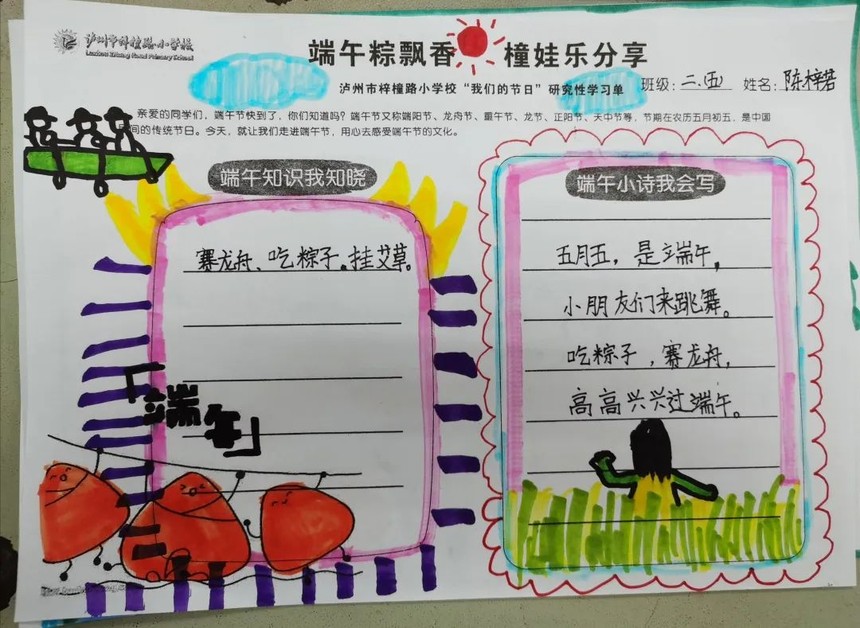 泸州市梓橦路小学校
端午粽飘香 橦娃乐分享
泸州市梓橦路小学校“我们的节日”研究性学习单
班级：二.(五) 姓名：陈梓若
亲爱的同学们，端午节快到了，你们知道吗？端午节又称端阳节、龙舟节、重午节、龙节、正阳节、天中节等，节期在农历五月初五，是中国
间的传统节日。今天，就让我们走进端午节，用心去感受端午节的文化。
端午知识我知晓
赛龙舟、吃粽子。挂艾草。
「端午」
端午小诗我会写
五月五，是端午，
小朋友们来跳舞。
吃粽子，赛龙舟，
高高兴兴过端午。